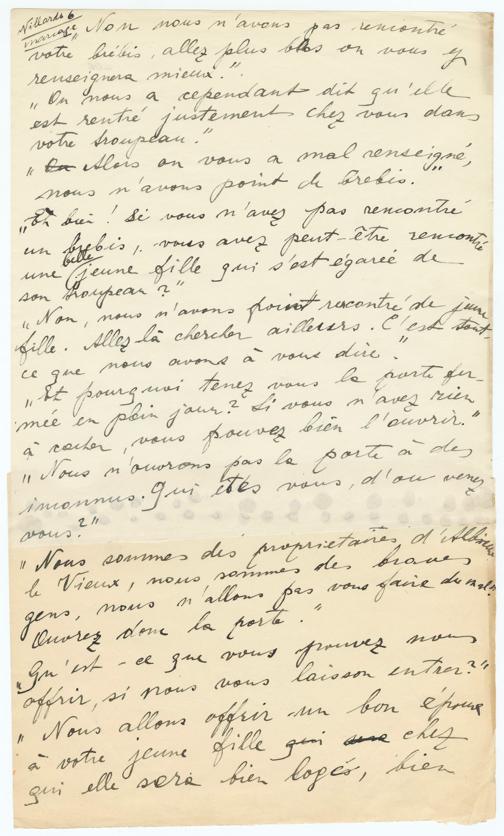 Villards 6
mariage
"Non nous n'avons pas rencontré
votre brebis, allez plus bas on vous y
renseignera mieux."
"On nous a cependant dit qu'elle
est rentré justement chez vous dans
votre troupeau."
"On Alors on vous a mal renseigné,
nous n'avons point de brebis."
"Eh bien! Si vous n'avez pas rencontré
un brebis, vous avez peut-être rencontré
une belle jeune fille qui s'est égarée de
son troupeau?"
"Non, nous n'avons point rencontré de jeune
fille. Allez là chercher ailleurs. C'est tout
ce que nous avons à vous dire."
"Et pourquoi tenez vous la porte fer-
mée en plein jour? Si vous n'avez rien
à cacher, vous pouvez bien l'ouvrir."
"Nous n'ouvrons pas la porte à des
inconnus. Qui etes vous, d'ou venez
vous?"
"Nous sommes des proprietaires d'
le Vieux, nous sommes des braves
gens, nous n'allons pas vous faire du mal.
Ouvrez donc la porte."
"Qu'est-ce que vous pouvez nous
offrir, si nous vous laisson entrer?"
"Nous allons offrir un bon époux
à votre jeune fille qui chez
qui elle sera bien logés, bien